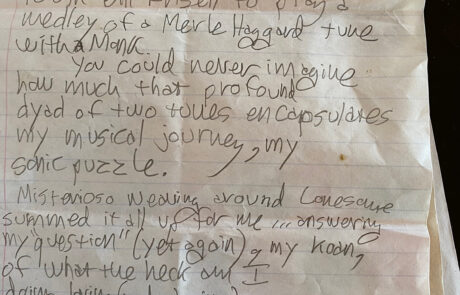 to play a
medley of a Merle Haggard tune
with a Monk.
You could never imagine
how much that profound
dyad of two tunes encapsulates
my musical journey, my
sonic puzzle.
Misterioso weaving around Lonesome
summed it all up for me ... answering
my "question" (yet again), my koan,
of what the heck am I